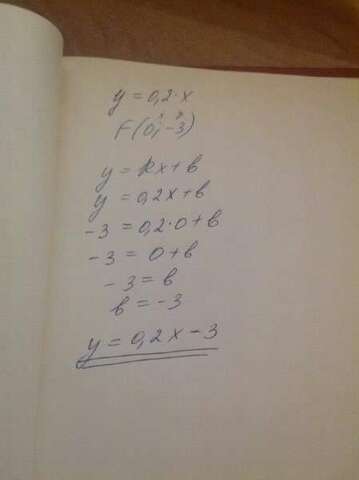 y = 0,2·x
F(0; -3)
y = kx + в
y = 0,2x + в
-3 = 0,2·0 + в
-3 = 0 + в
-3 = в
в = -3
y = 0,2x - 3